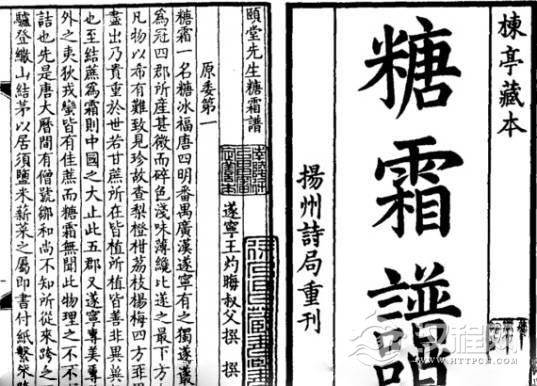 楝亭藏本
糖霜譜
揚州詩局重刊
頤堂先生糖霜譜
遂寧王灼晦叔父撰
撰
原委第一
糖霜一名糖冰福唐四明番禺廣漢遂寧有之獨遂
為冠四郡所產甚微而碎色淺味薄纔比遂之最下
凡物以希有難致見珍故查梨橙柑荔枝楊梅四方
盡出乃貴重於世若甘蔗所在皆植所植皆善非異
也至結蔗為霜則中國之大止此五郡又遂寧專美
外之夷狄戎蠻皆有佳蔗而糖霜無聞此物理之不
詰也先是唐大曆間有僧號鄒和尚不知所從來跨
驢登繖山結茅以居須鹽米薪菜之屬即書付紙繫
汉程网